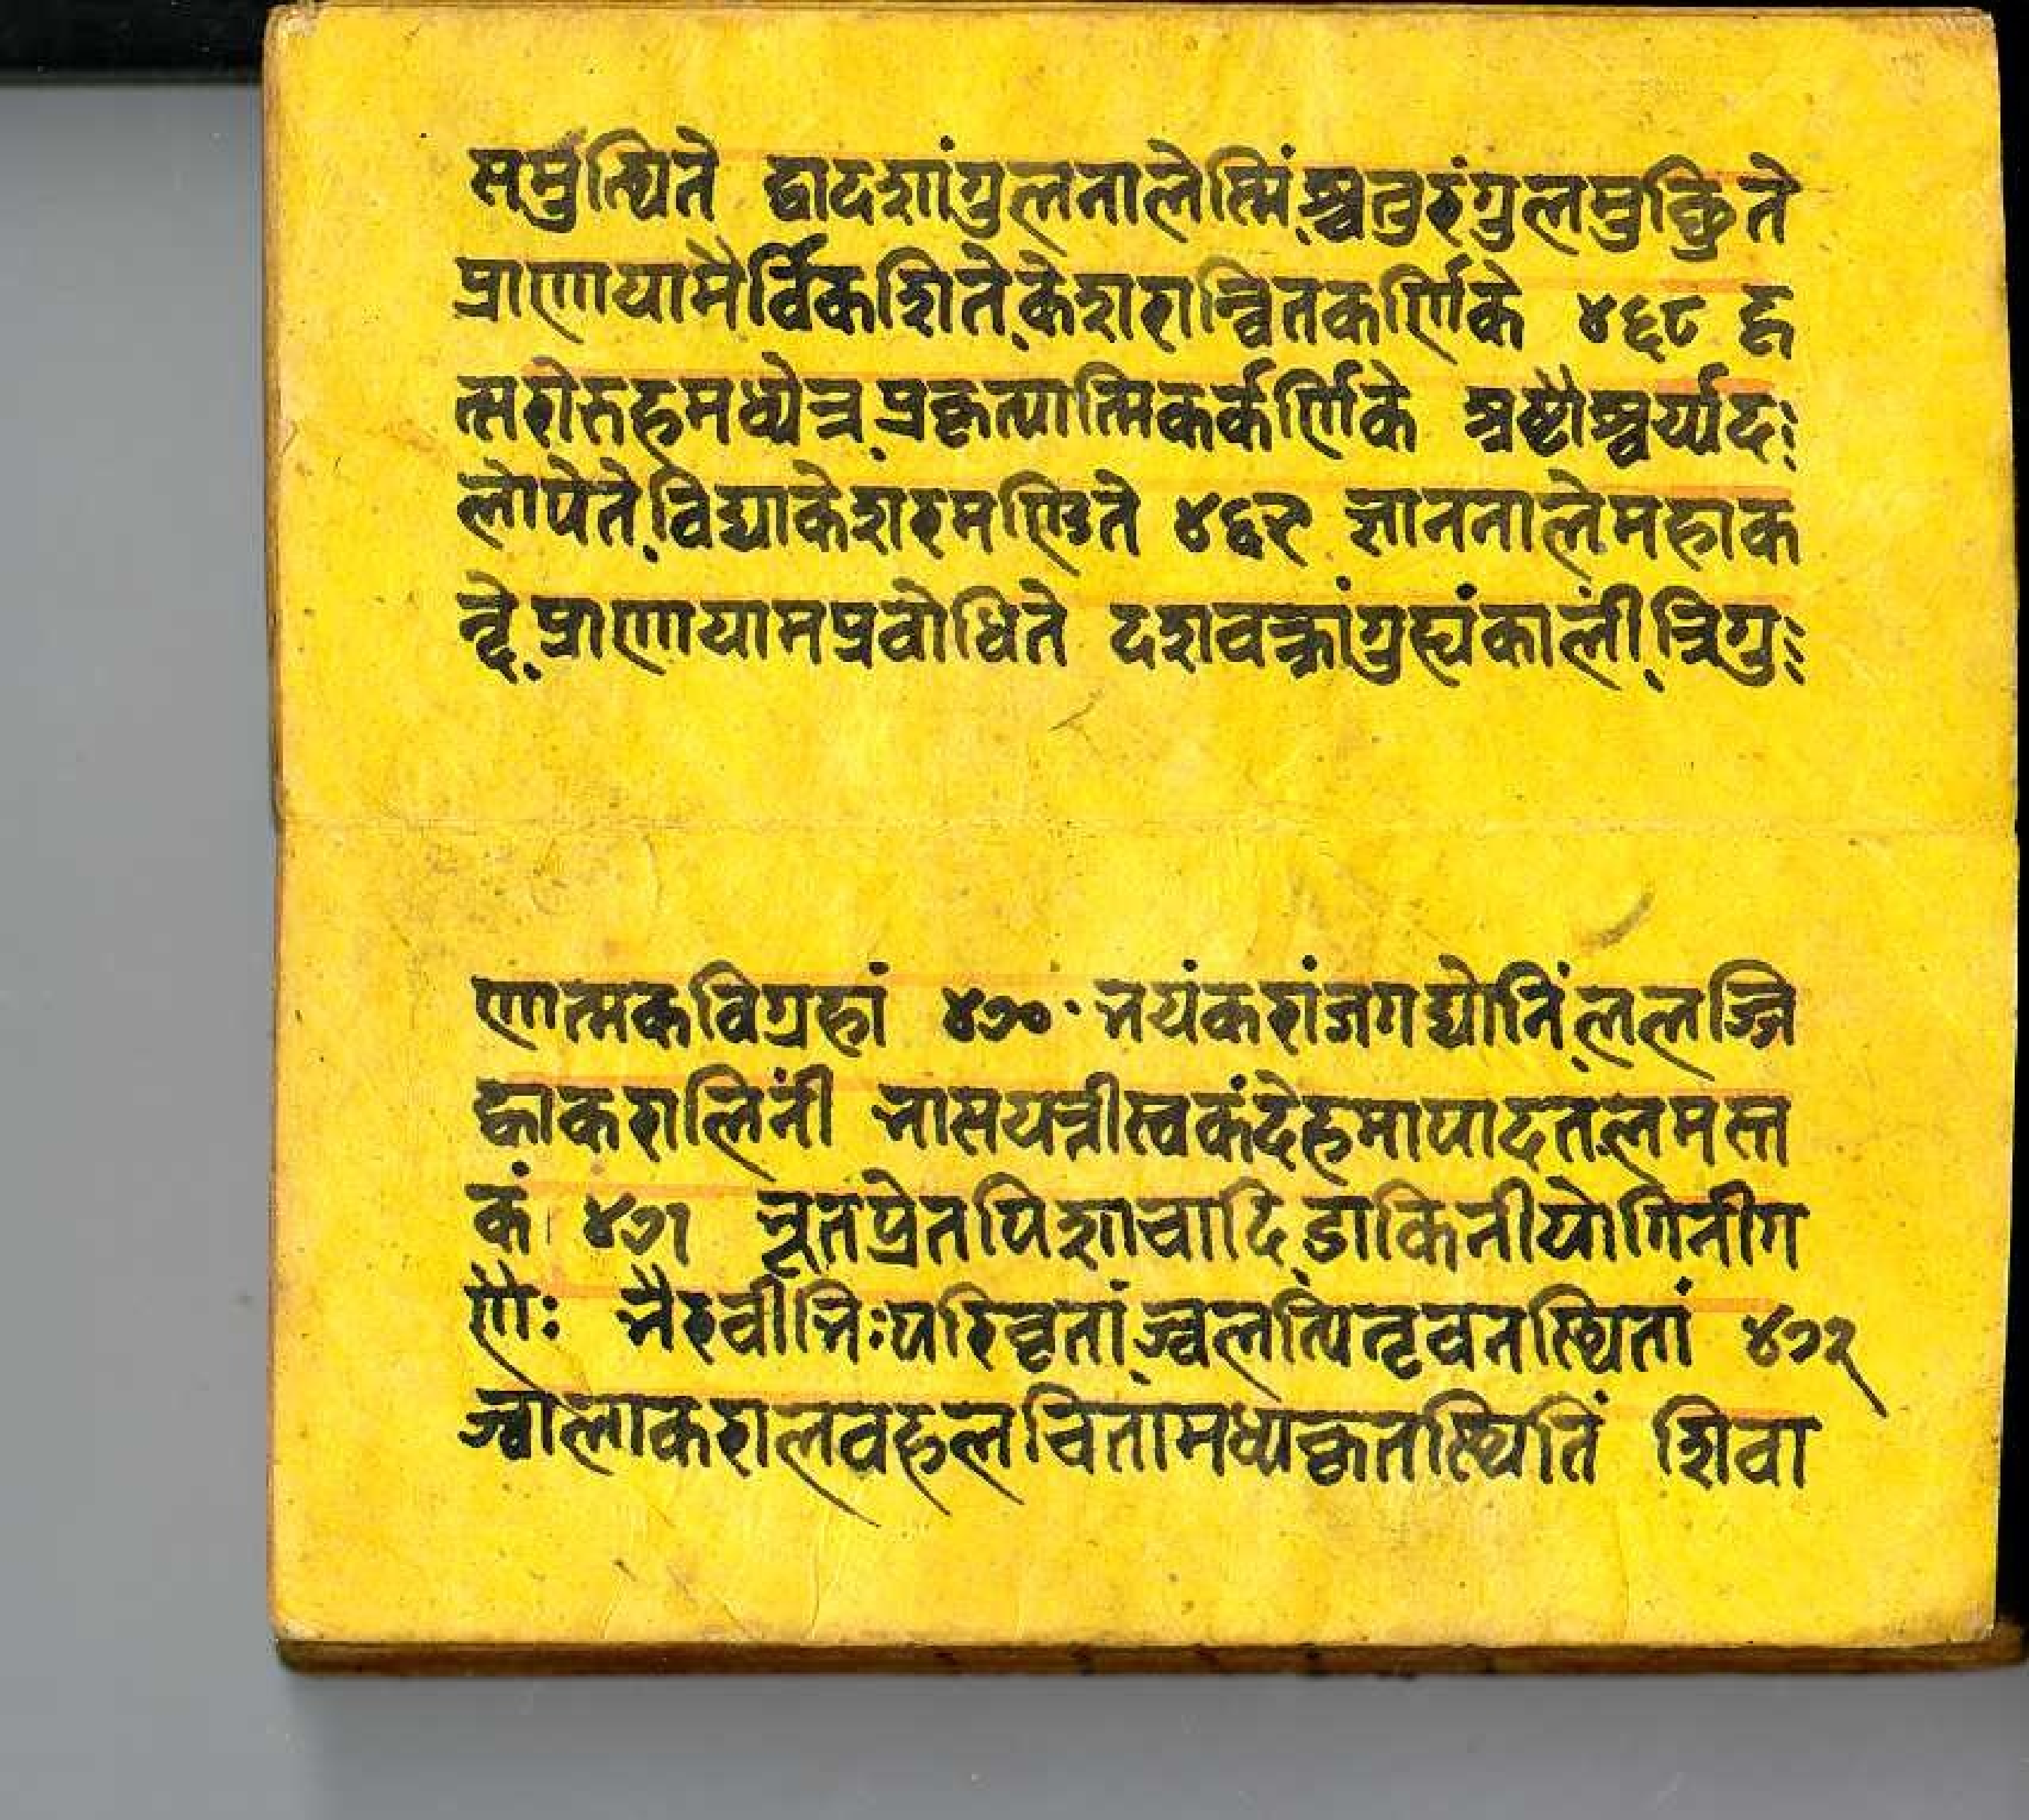 समुत्थिते द्वादशांगुलनालेस्मिंश्चतुरंगुलमुक्तिते
प्राणायामैर्विकशिते केशरान्वितकर्णिके ४६८ हृ
त्सरोरुहमध्येत्र प्रकृत्यात्मिककर्कर्णिके अष्टैाश्वर्य्यद
लोपेते विद्याकेशरमण्डिते ४६९ ज्ञाननालेमहाक
न्दे प्राणायामप्रवोधिते दशवक्त्रांगुह्यंकालीं त्रिगु
णात्मकविग्रहां ४७० भयंकरांजगद्योनिं ललज्जि
ह्वाकरालिनीं भासयन्त्रीस्वकंदेहमापादतलमस्त
कं ४७१ भूतप्रेतपिशाचादि डाकिनीयोगिनीग
णैः भैरवीभिःपरिवृतां ज्वलत्पितृवनस्थितां ४७२
ज्वालाकरालवहलचितामध्यकृतस्थितिं शिवा